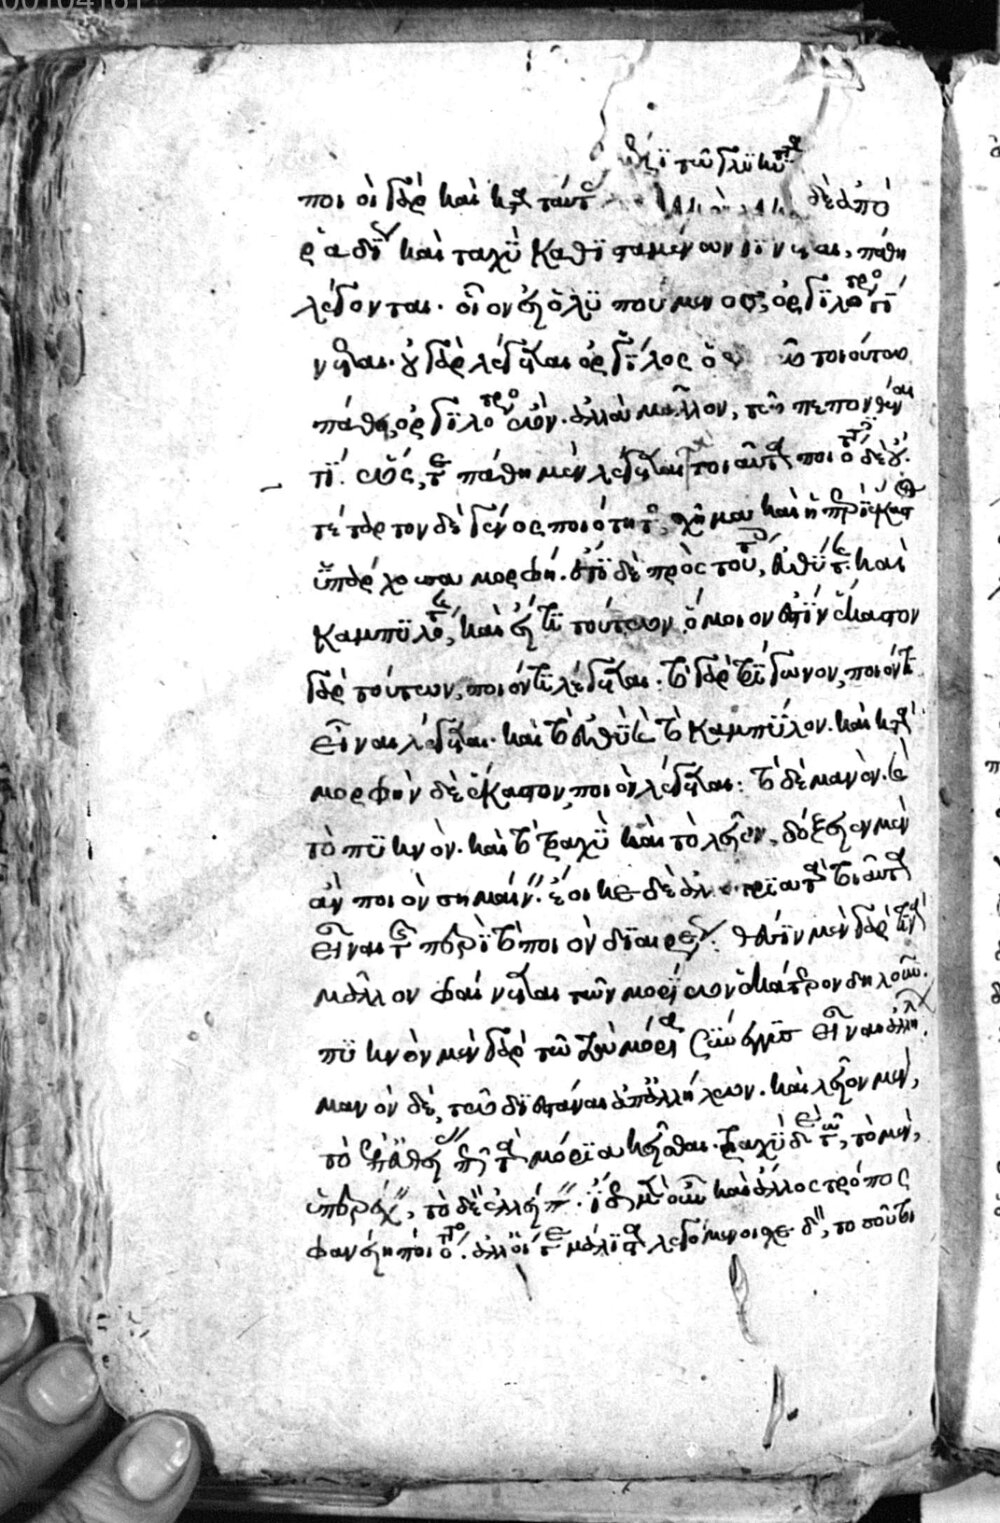 ποι οἱ γὰρ καὶ κατὰ ταύτας δὲ ἀπὸ
ῥαδίως καὶ ταχὺ καθισταμένων γίνεται, πάθη
λέγονται. οἷον εἰ ὁ λυπούμενος, ὀργιλότερος γί
νεται. οὐ γὰρ λέγεται ὀργίλος ὁ ἐν τῷ τοιούτῳ
πάθει ὀργιλότερος ὤν. ἀλλὰ μᾶλλον, πεπονθέναι
τί. ὥστε πάθη μὲν λέγεται τὰ τοιαῦτα ποιότης δὲ οὔ.
τέταρτον δὲ γένος ποιότητος, σχῆμα καὶ ἡ περὶ ἕκαστον
ὑπάρχουσα μορφή. ἔτι δὲ πρὸς τούτοις, εὐθύτης καὶ
καμπυλότης, καὶ εἴ τι τούτοις ὅμοιόν ἐστιν ἕκαστον
γὰρ τούτων, ποιόν τι λέγεται. τὸ γὰρ τρίγωνον, ποιόν τι
εἶναι λέγεται. καὶ τὸ εὐθὺ καὶ τὸ καμπύλον. καὶ κατὰ
μορφὴν δὲ ἕκαστον, ποιὸν λέγεται. τὸ δὲ μανὸν καὶ
τὸ πυκνὸν. καὶ τὸ τραχὺ καὶ τὸ λεῖον, δόξειεν μὲν
ἂν ποιὸν σημαίνειν. ἔοικε δὲ ἀλλότρια τὰ τοιαῦτα
εἶναι τῆς περὶ τὸ ποιὸν διαιρέσεως. θέσιν μὲν γὰρ τινὰ
μᾶλλον φαίνεται τῶν μορίων ἑκάτερον δηλοῦν.
πυκνὸν μὲν γὰρ τῷ τὰ μόρια σύνεγγυς εἶναι ἀλλήλοις.
μανὸν δὲ, τῷ διεστάναι ἀπ' ἀλλήλων. καὶ λεῖον μὲν,
τῷ ἐπ' εὐθείας πως τὰ μόρια κεῖσθαι. τραχὺ δὲ τῷ, τὸ μὲν,
ὑπερέχειν, τὸ δὲ ἐλλείπειν. ἴσως μὲν οὖν καὶ ἄλλος τρόπος
φανείη ποιότητος. ἀλλ' οἵ γε μάλιστα λεγόμενοι σχεδόν, τοσοῦτοι